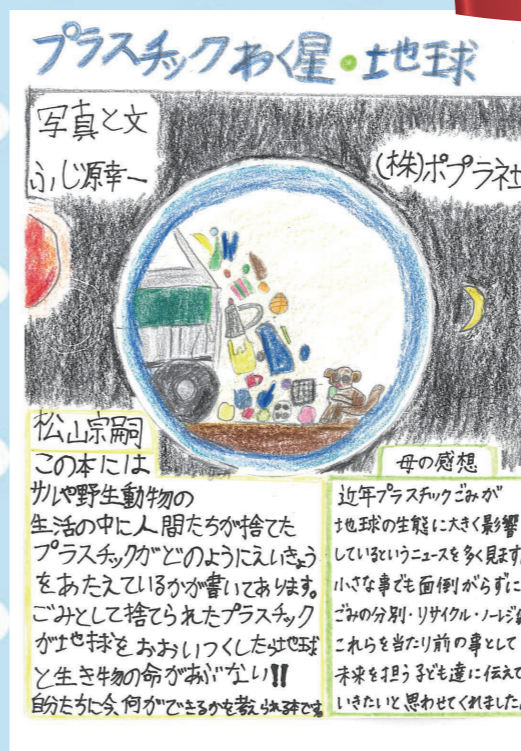 プラスチックわく星・地球
写真と文
ふじ原幸一
(株)ポプラ社
松山宗嗣
この本には
サルや野生動物の
生活の中に人間たちが捨てた
プラスチックがどのようにえいきょう
をあたえているかが書いてあります。
ごみとして捨てられたプラスチック
が地球をおおいつくしたら地球
と生き物の命があぶない!!
自分たちに今、何ができるかを考えられる本です
母の感想
近年プラスチックごみが
地球の生態に大きく影響
しているというニュースを多く見ます
小さな事でも面倒がらずに
ごみの分別・リサイクル・ノーレジ
これらを当たり前の事として
未来を担う子ども達に伝えて
いきたいと思わせてくれました